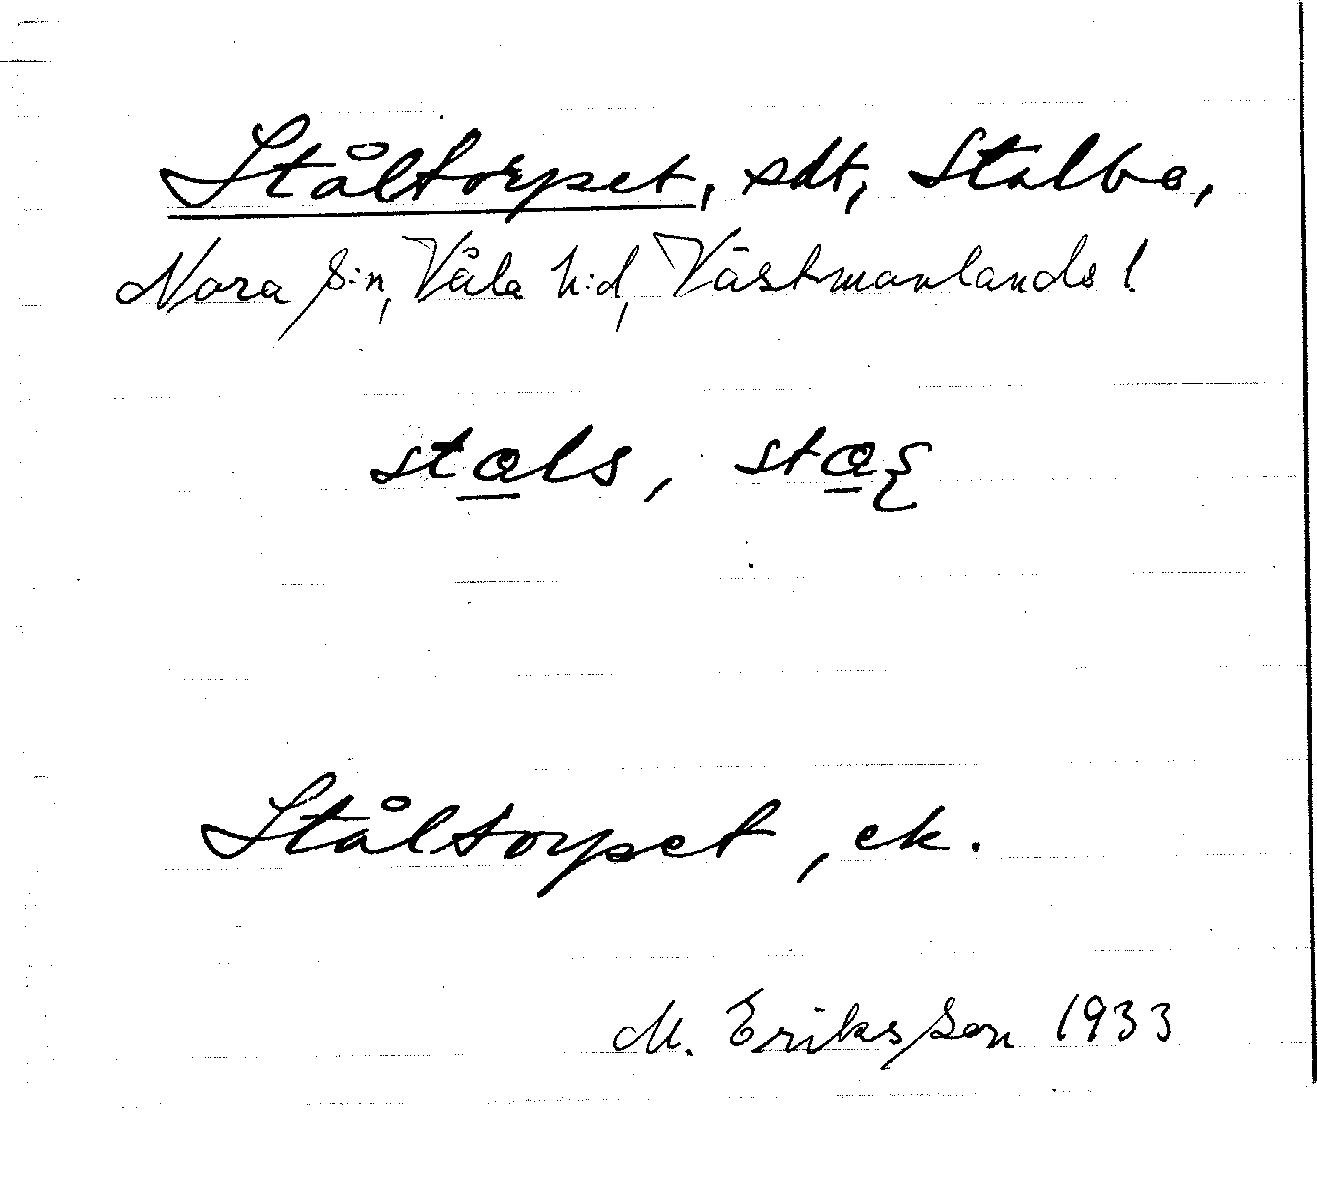 Ståltorpet, sdt, Stalbo,
Nora s:n, Våla h:d, Västmanlands l.
stals, sta
Ståltorpet, ek.
M. Eriksson 1933